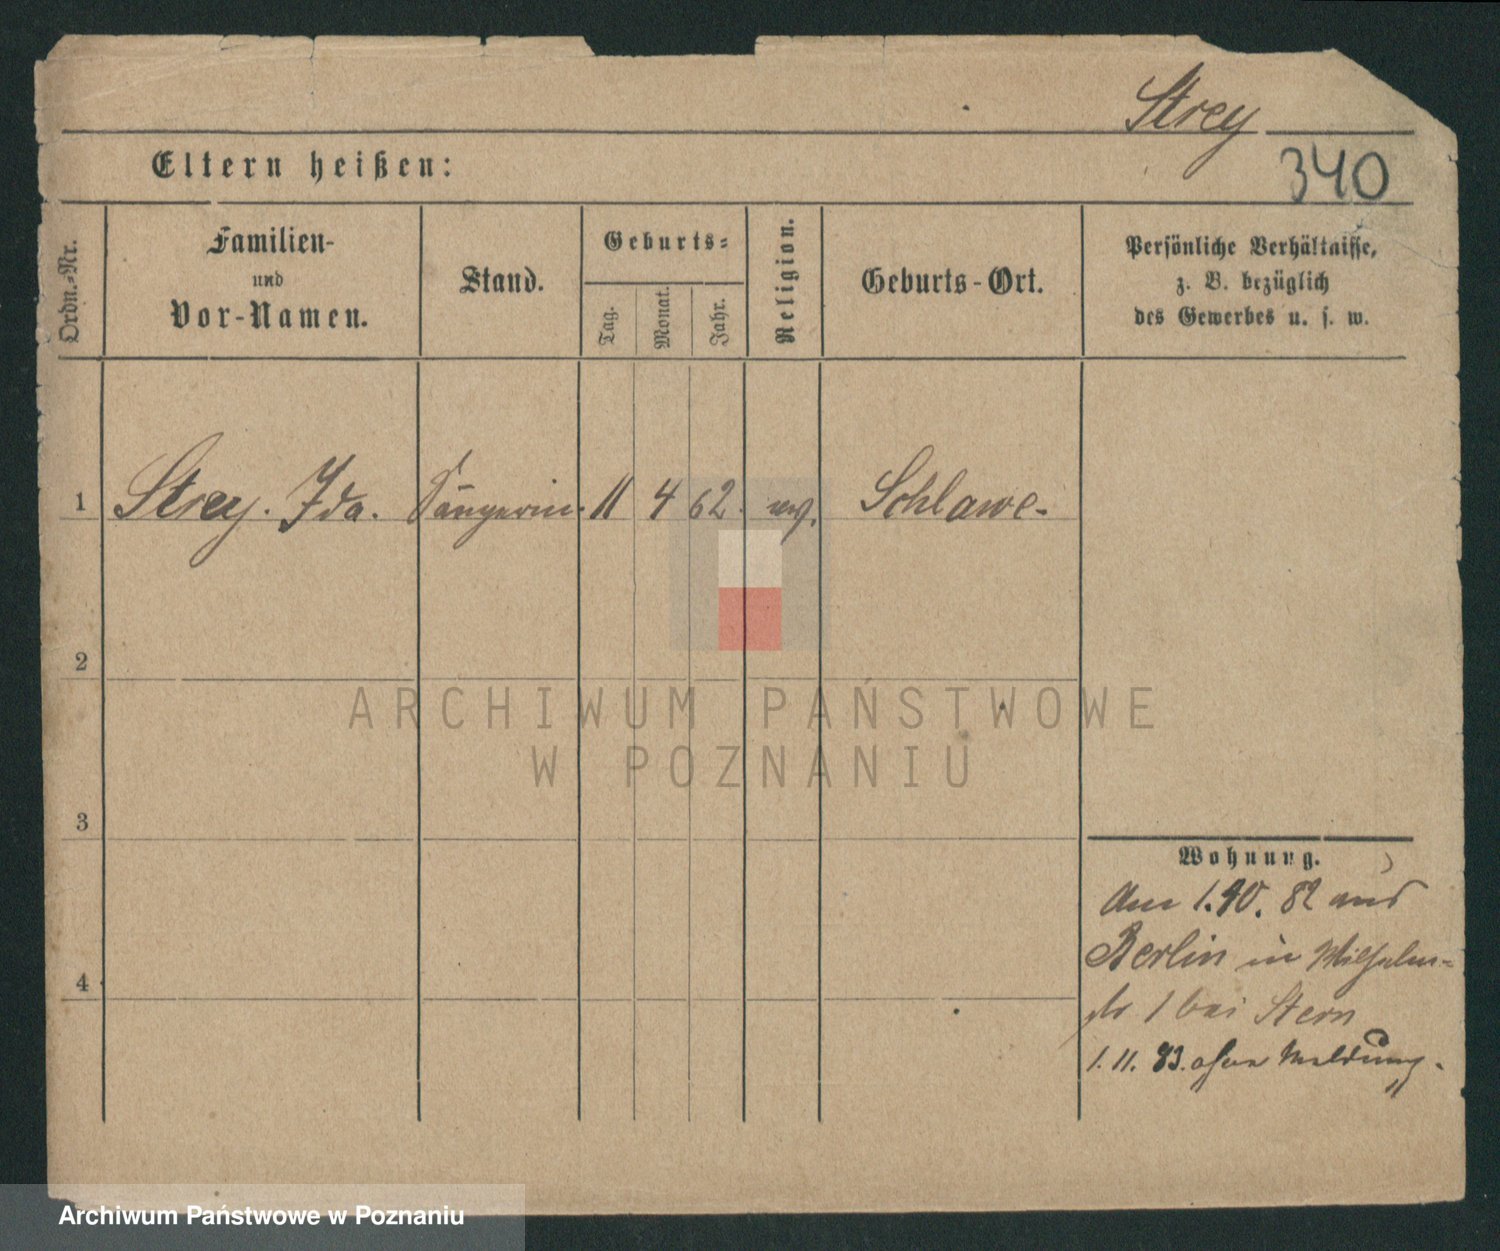 Strey
340
Eltern heißen:
Ordn.-Nr.
Familien-
und
Vor-Namen.
Stand.
Geburts-
Tag.
Monat.
Jahr.
Religion.
Geburts-Ort.
Persönliche Verhältnisse,
z. B. bezüglich
des Gewerbes u. s. w.
1 Strey. Ida. Sängerin. 11 4 62. ev. Schlawe.
2
3
4
Wohnung.
Am 1.10.82 aus
Berlin in Wilhelm-
str 1 bei Stern
1.11.83. ohne Meldung.
ARCHIWUM PAŃSTWOWE
W POZNANIU
Archiwum Państwowe w Poznaniu